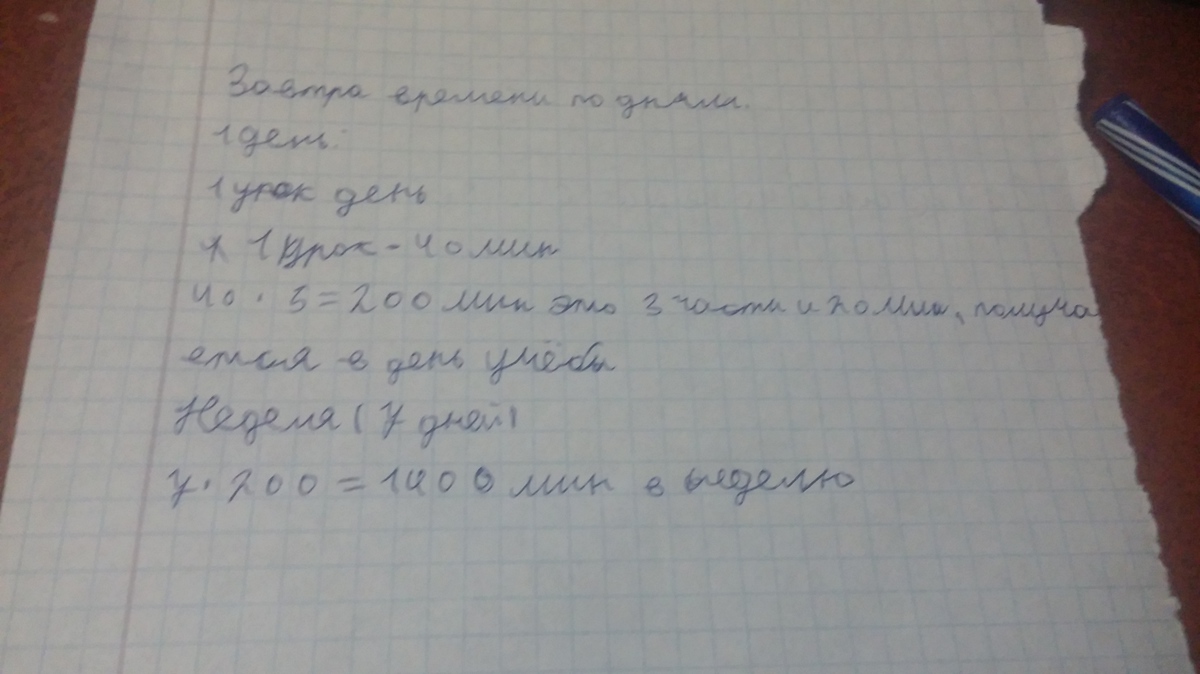 Завтра времени по дням.
1 день:
1 урок день
1 урок - 40 мин
40 · 5 = 200 мин это 3 части и 20 мин, получа
ется в день учёбы
Неделя (7 дней)
7 · 200 = 1400 мин в неделю